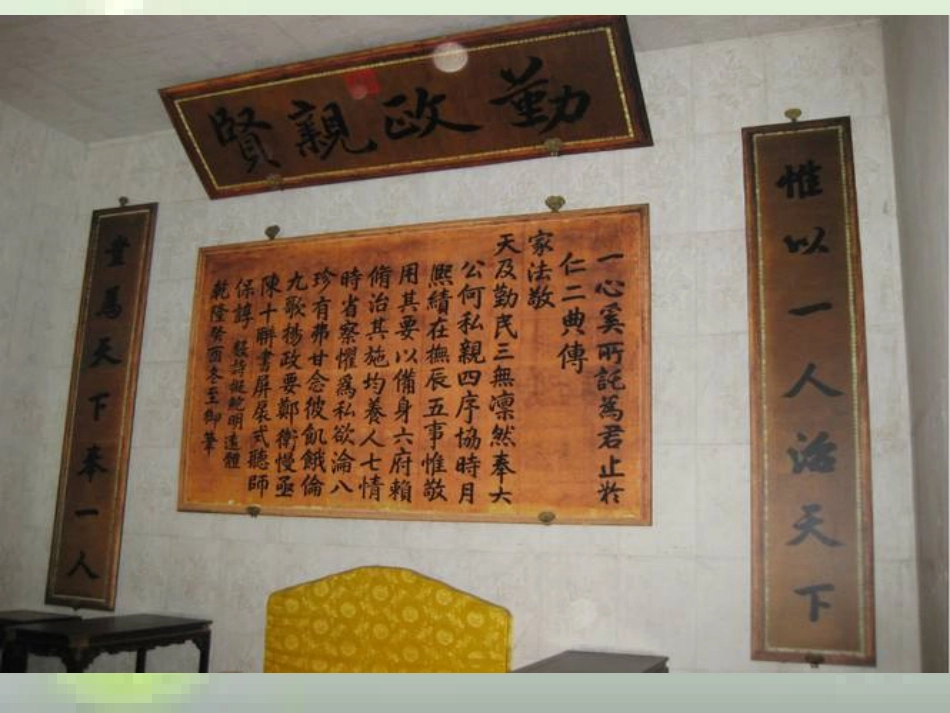 勤政親賢
惟以一人治天下
一心奚所託為君止於
仁二典傳
家法敬
天及勤民三無凛然奉大
公何私親四序協時月
熈績在撫辰五事惟敬
用其要以備身六府賴
脩治其施均養人七情
時省察懼為私欲淪八
珍有弗甘念彼飢餓倫
九歌揚政要鄭衛慢亟
陳十聯書屏扆式聽師
保諄 數詩擬鮑明遠體
乾隆癸酉冬至御筆
豈為天下奉一人